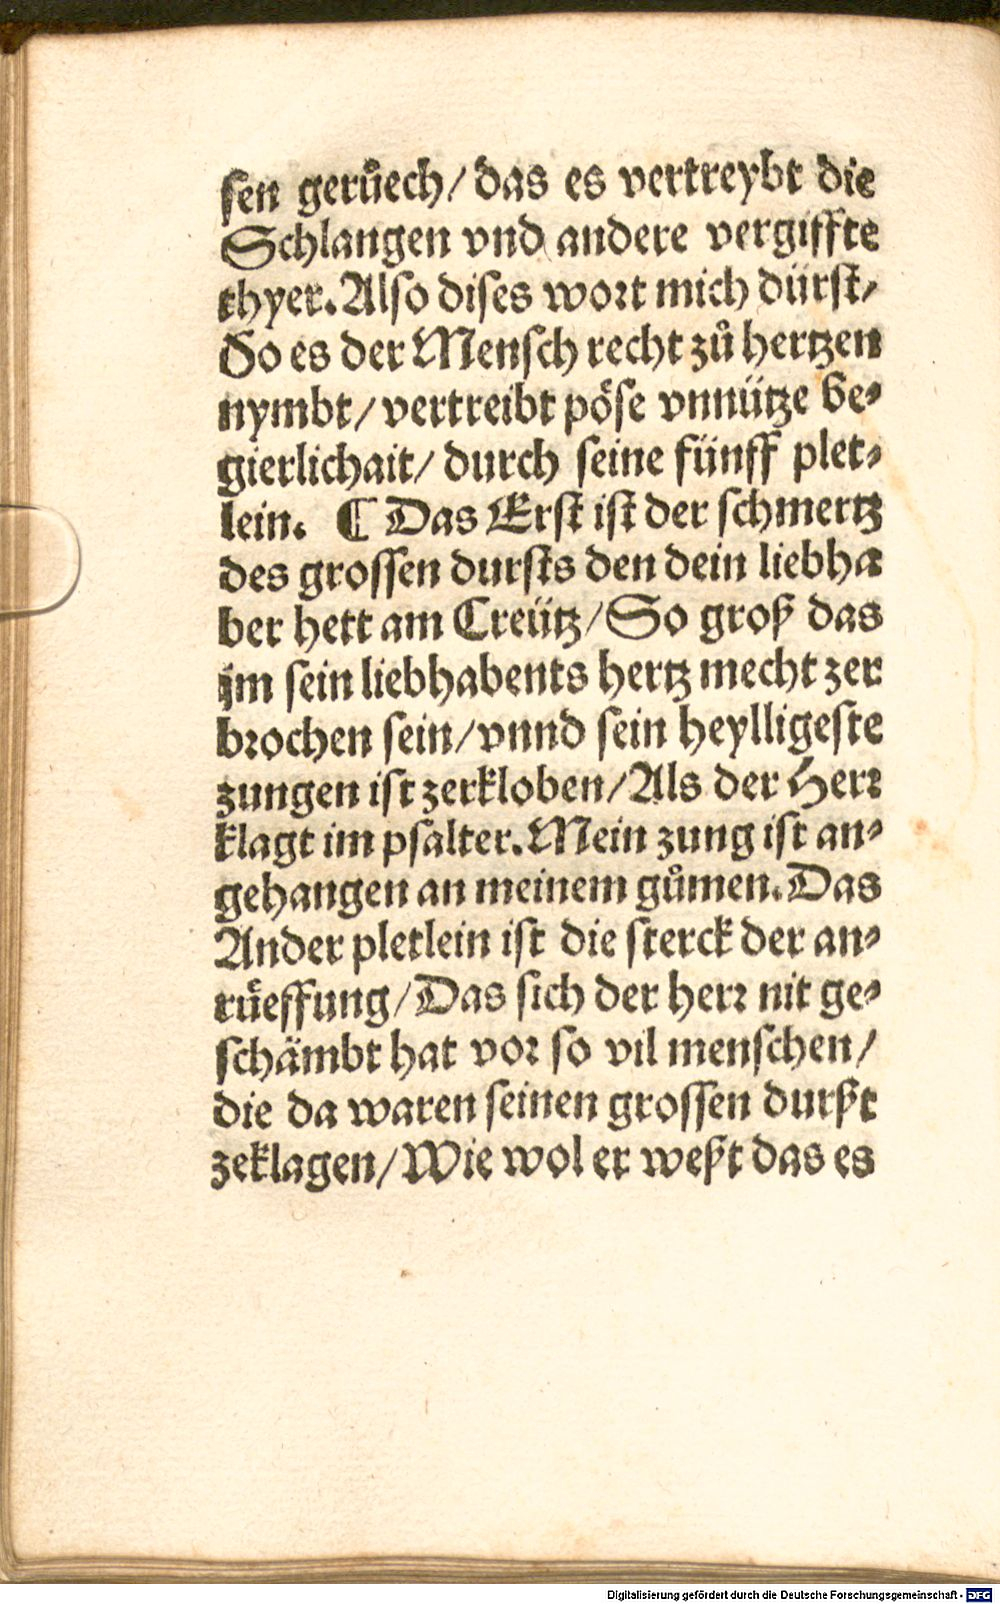 sen gerůech/ das es vertreybt die
Schlangen vnd andere vergiffte
thyer. Also dises wort mich dürst/
So es der Mensch recht zů hertzen
nymbt/ vertreibt pöse vnnütze be⸗
gierlichait/ durch seine fünff plet⸗
lein. ¶ Das Erst ist der schmertz
des grossen dursts den dein liebha
ber hett am Creütz/ So groß das
jm sein liebhabents hertz mecht zer
brochen sein/ vnnd sein heylligeste
zungen ist zerkloben/ Als der Herr
klagt im psalter. Mein zung ist an⸗
gehangen an meinem gůmen. Das
Ander pletlein ist die sterck der an⸗
rüeffung/ Das sich der herr nit ge⸗
schämbt hat vor so vil menschen/
die da waren seinen grossen durßt
zeklagen/ Wie wol er weßt das es
Digitalisierung gefördert durch die Deutsche Forschungsgemeinschaft - DFG